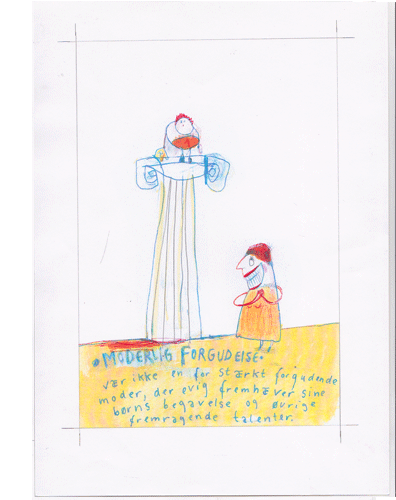 • MODERLIG FORGUDELSE •
vær ikke en for stærkt forgudende
moder, der evig fremhæver sine
børns begavelse og øvrige
fremragende talenter.